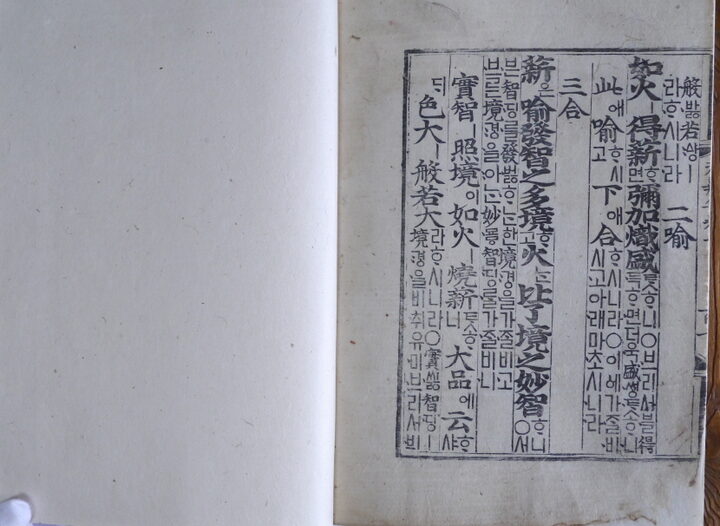 般밣若ᅀᅣᆼㅣ
라ᄒᆞ시니라 二喩
如火ㅣ得薪ᄒᆞ면彌加熾盛ᄐᆞᆺᄒᆞ니○브리서블得득ᄒᆞ면더욱盛쎵ᄐᆞᆺᄒᆞ니
此애喩ᄒᆞ시고下애合ᄒᆞ시니라○이에가ᄌᆞᆯ비시고아래마초시니라
三合
薪은喩發智之多境ᄒᆞ고火ᄂᆞᆫ比了境之妙智ᄒᆞ니○서
븐智딩ᄅᆞᆯ發벓ᄒᆞᄂᆞᆫ한境경을가ᄌᆞᆯ비고
브른境경을아ᄂᆞᆫ妙묳智딩ᄅᆞᆯ가ᄌᆞᆯ비니
實智ㅣ照境이如火ㅣ燒薪ᄐᆞᆺᄒᆞ니大品에云ᄒᆞ샤
ᄃᆡ色大ㅣ般若大라ᄒᆞ시니라○實씷智딩ㅣ
境경을비취유미브리서브